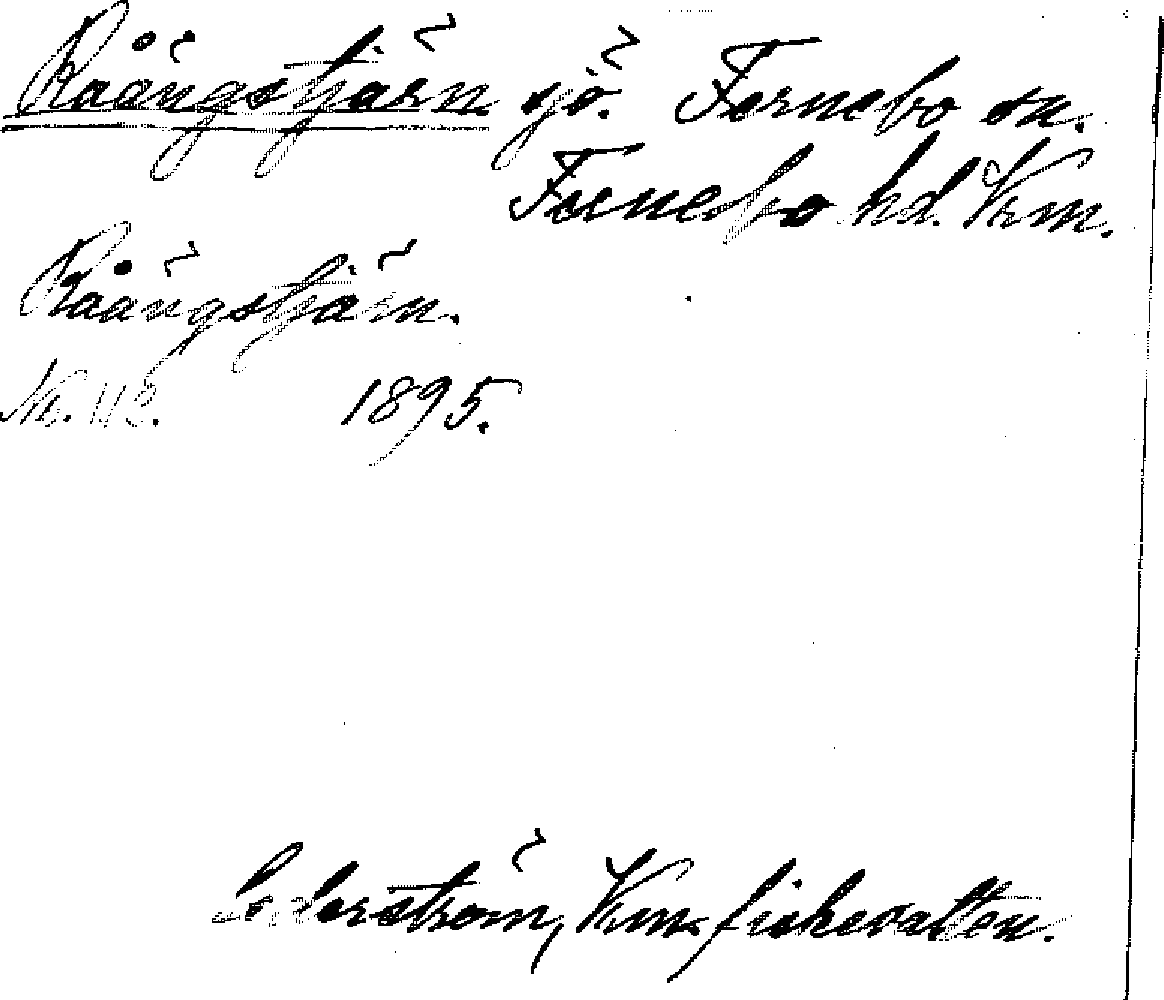 Råängstjärn sjö. Fernebo sn.
Fernebo hd. Vrm.
Råängstjärn.
1895.
Cederström, Vrm. fiskevatten.